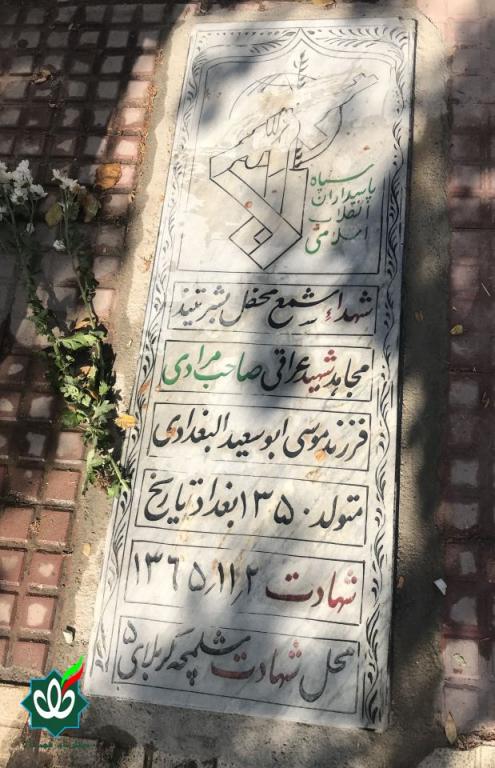 سپاه
پاسداران
انقلاب
اسلامی
شهداء شمع محفل بشریتند
مجاهد شهید عراقی صاحب مرادی
فرزند موسی ابوسعید البغدادی
متولد ۱۳۵۰ بغداد تاریخ
شهادت ۱۳۶۵٫۱۱٫۲
محل شهادت شلمچه کربلای ۵